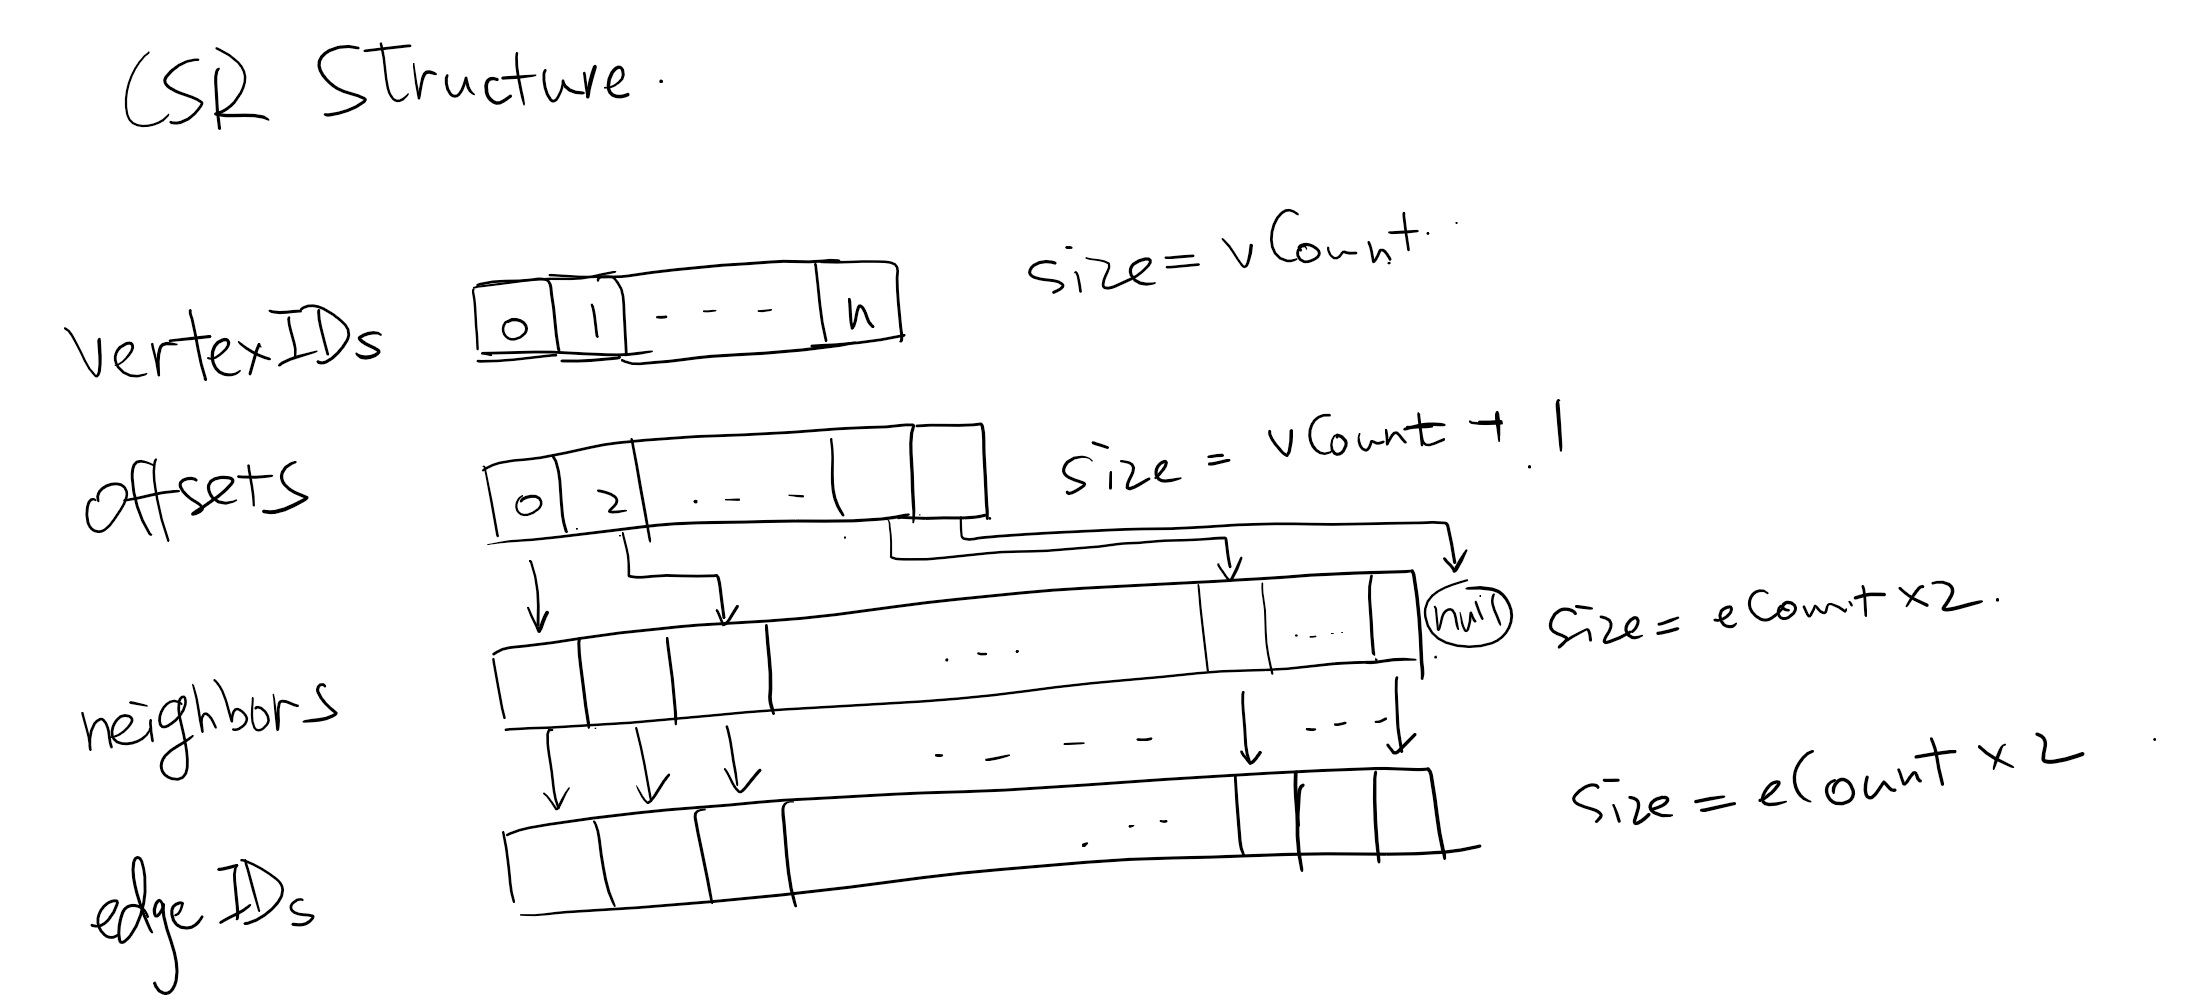 CSR Structure.
vertexIDs 0 1 - - - n size = vCount.
offsets 0 2 . - - size = vCount + 1
null
neighbors . - . .... size = eCount x2.
- - - - - - -
edge IDs . - - size = eCount x 2